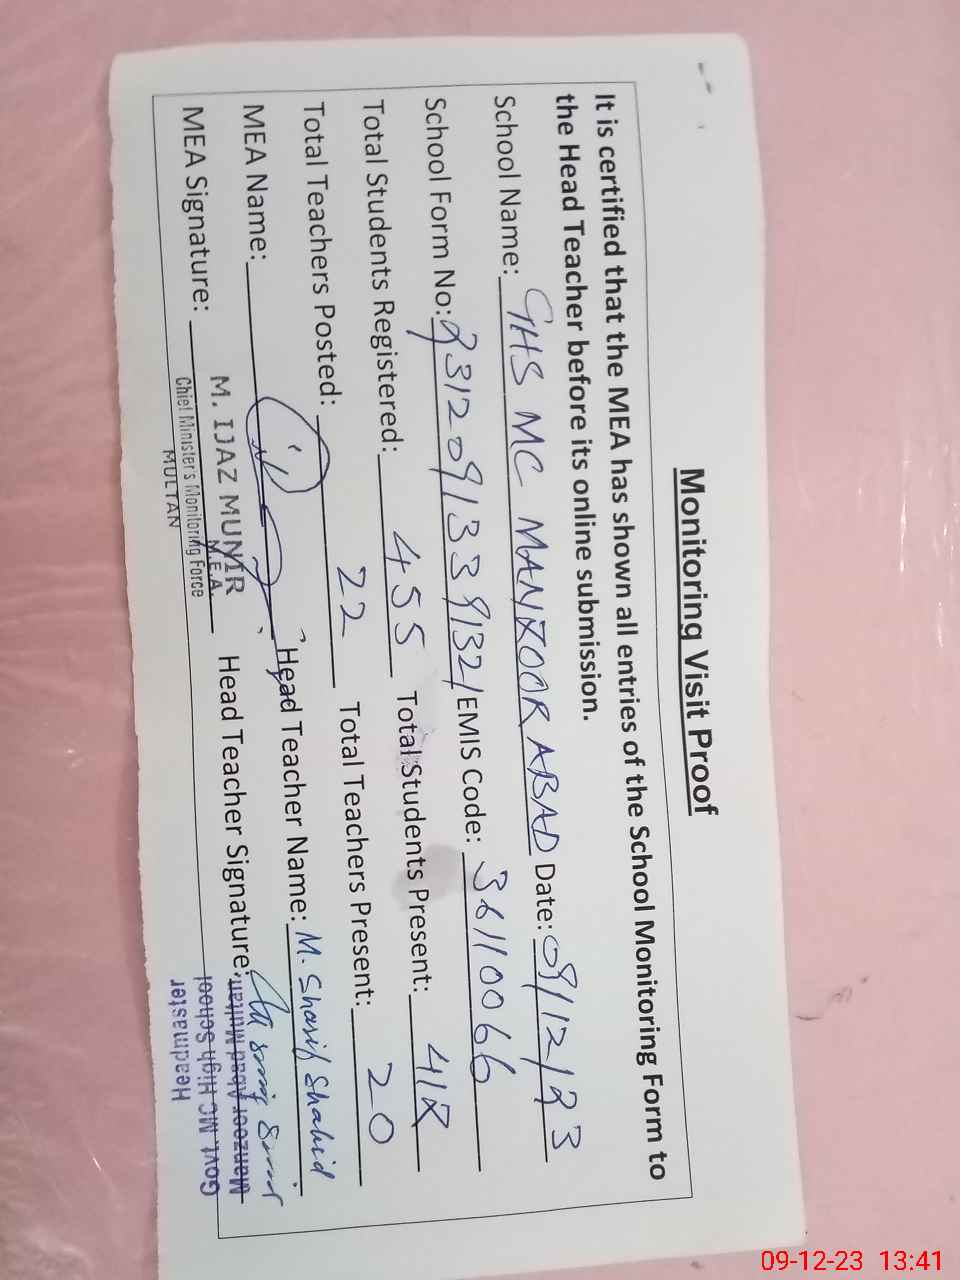 Monitoring Visit Proof
It is certified that the MEA has shown all entries of the School Monitoring Form to
the Head Teacher before its online submission.
School Name: GHS MC MANZOOR ABAD Date: 09/12/23
School Form No: 23120913391321 EMIS Code: 36110066
Total Students Registered: 455 Total Students Present: 412
Total Teachers Posted: 22 Total Teachers Present: 20
MEA Name: Head Teacher Name: M. Sharif Shahid
MEA Signature: Head Teacher Signature:
M. IJAZ MUNIR
M.E.A.
Chief Minister's Monitoring Force
MULTAN
Headmaster
Govt. MC High School
Manzoor Abad Multan
09-12-23 13:41